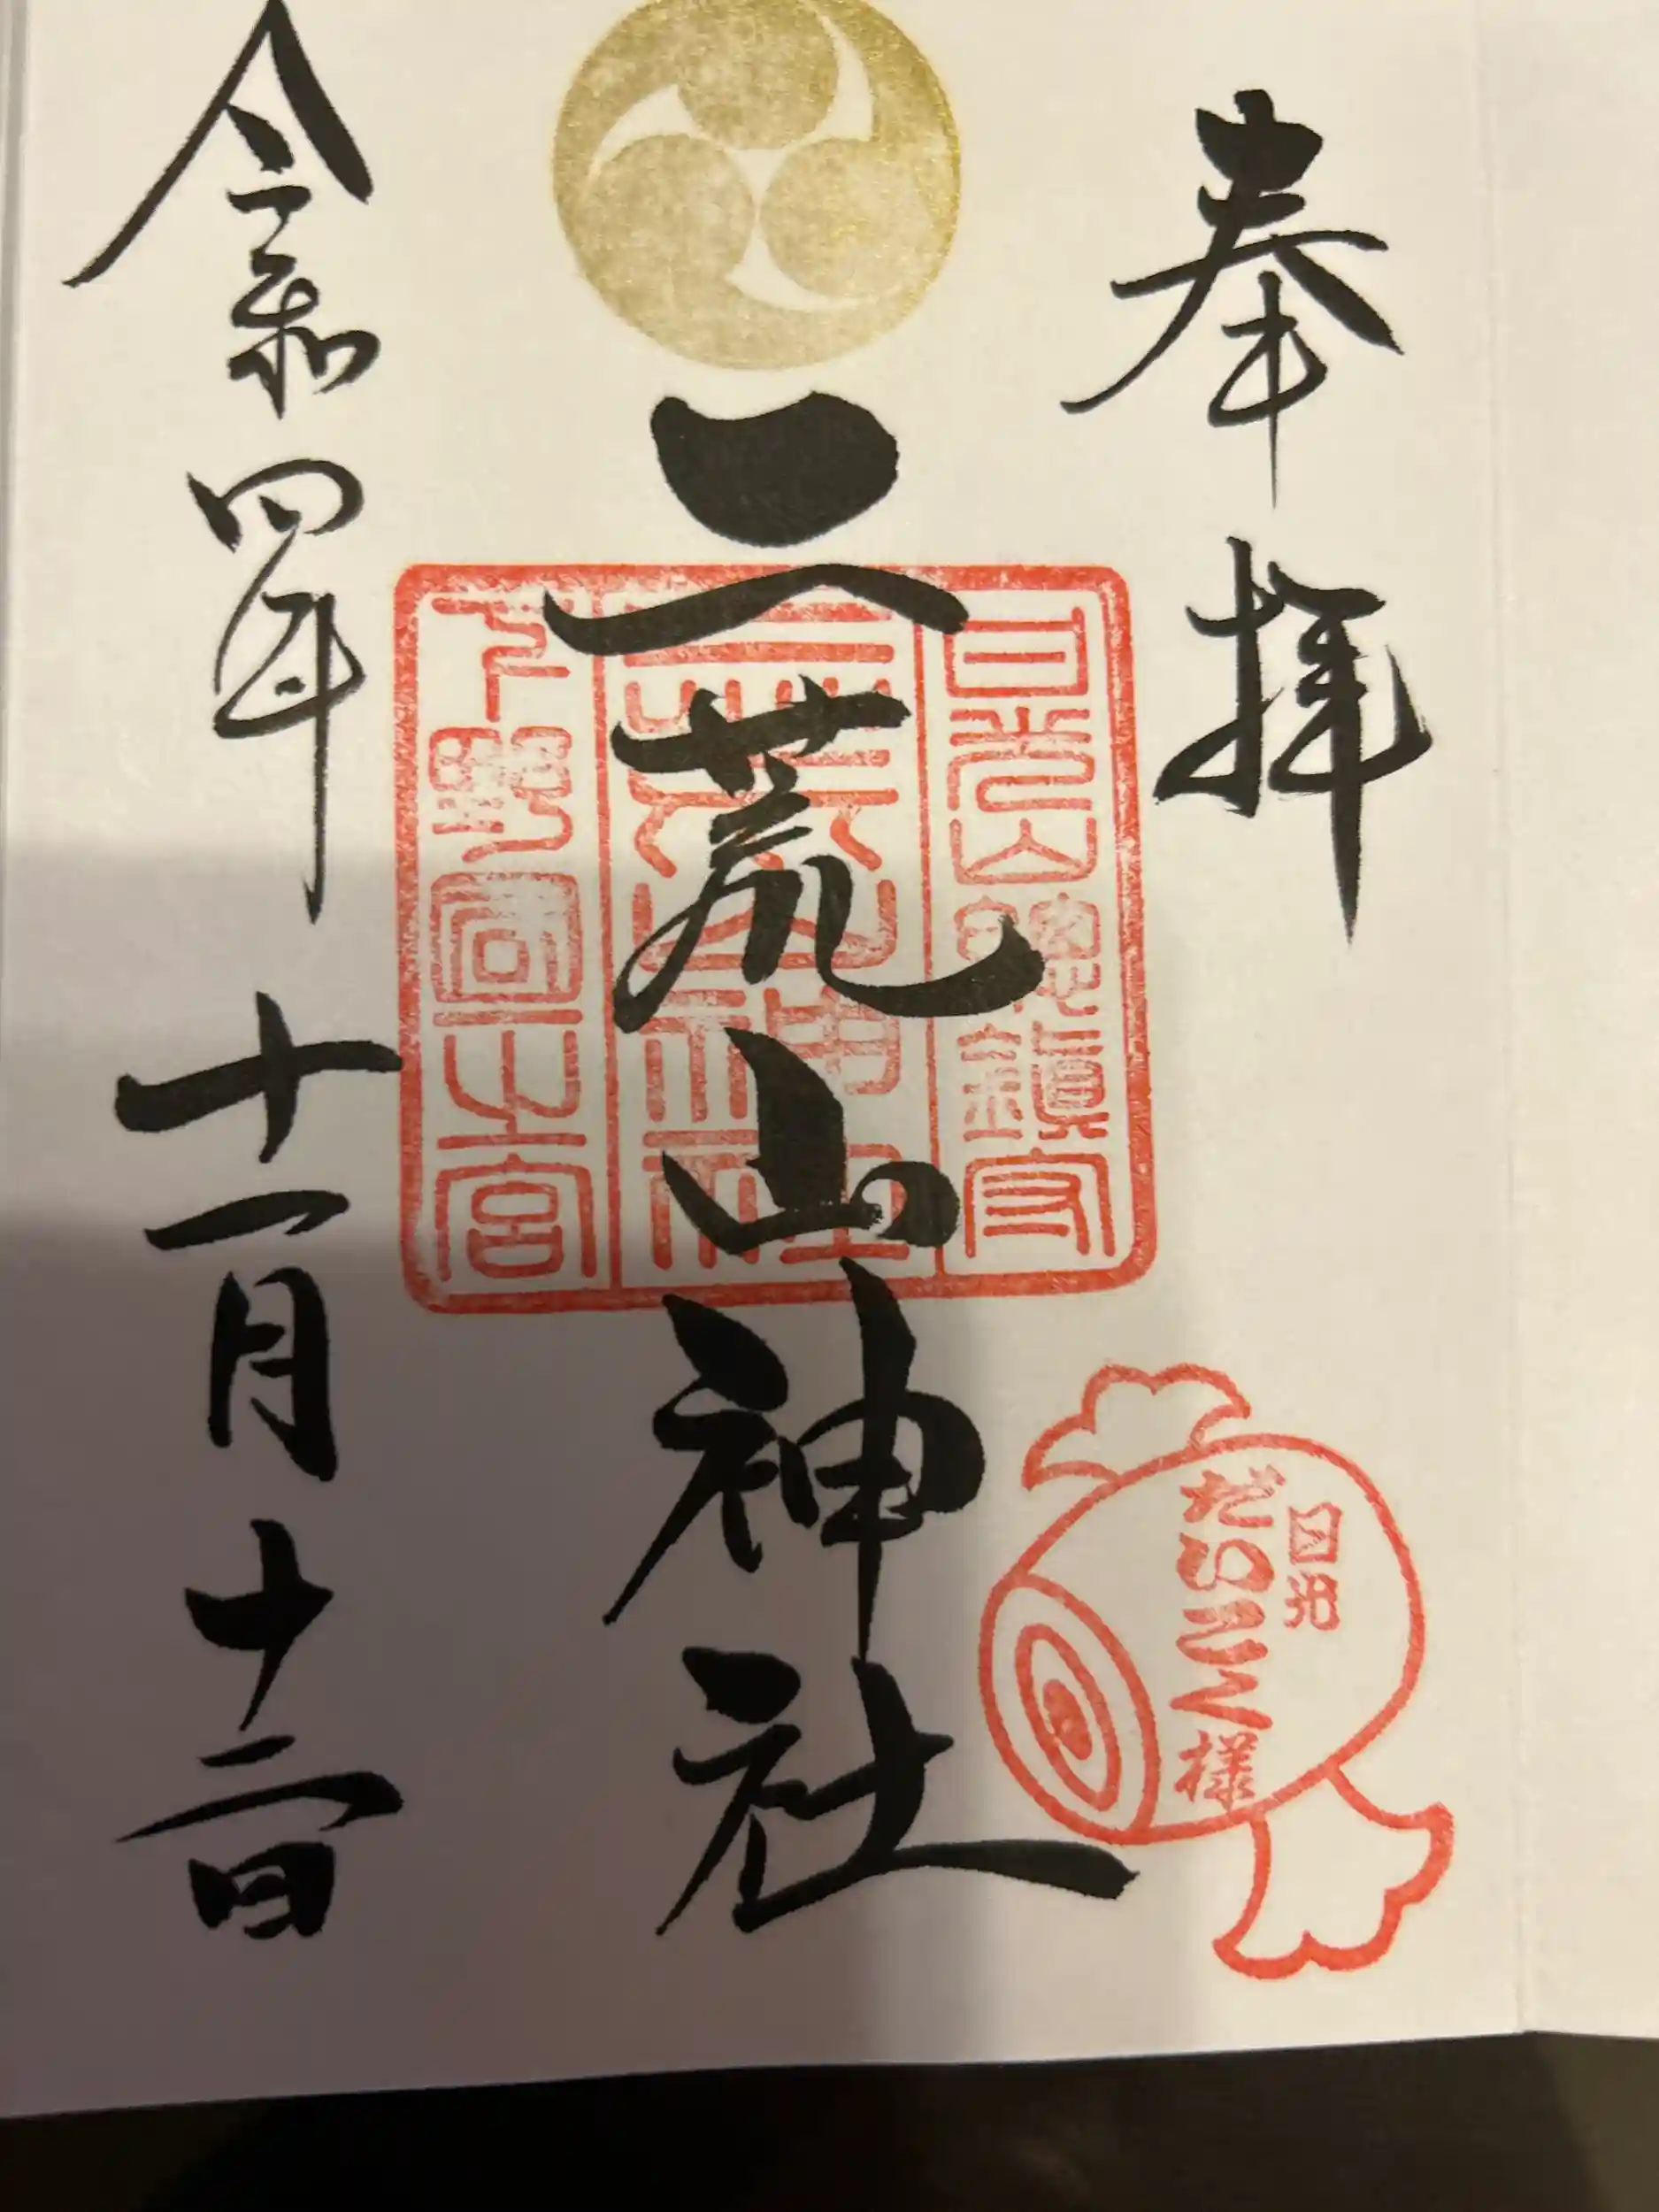 奉拝
日光山総鎮守
日光
だいこく様
二荒山神社
二荒山神社
下野國一之宮
令和四年十一月十二日